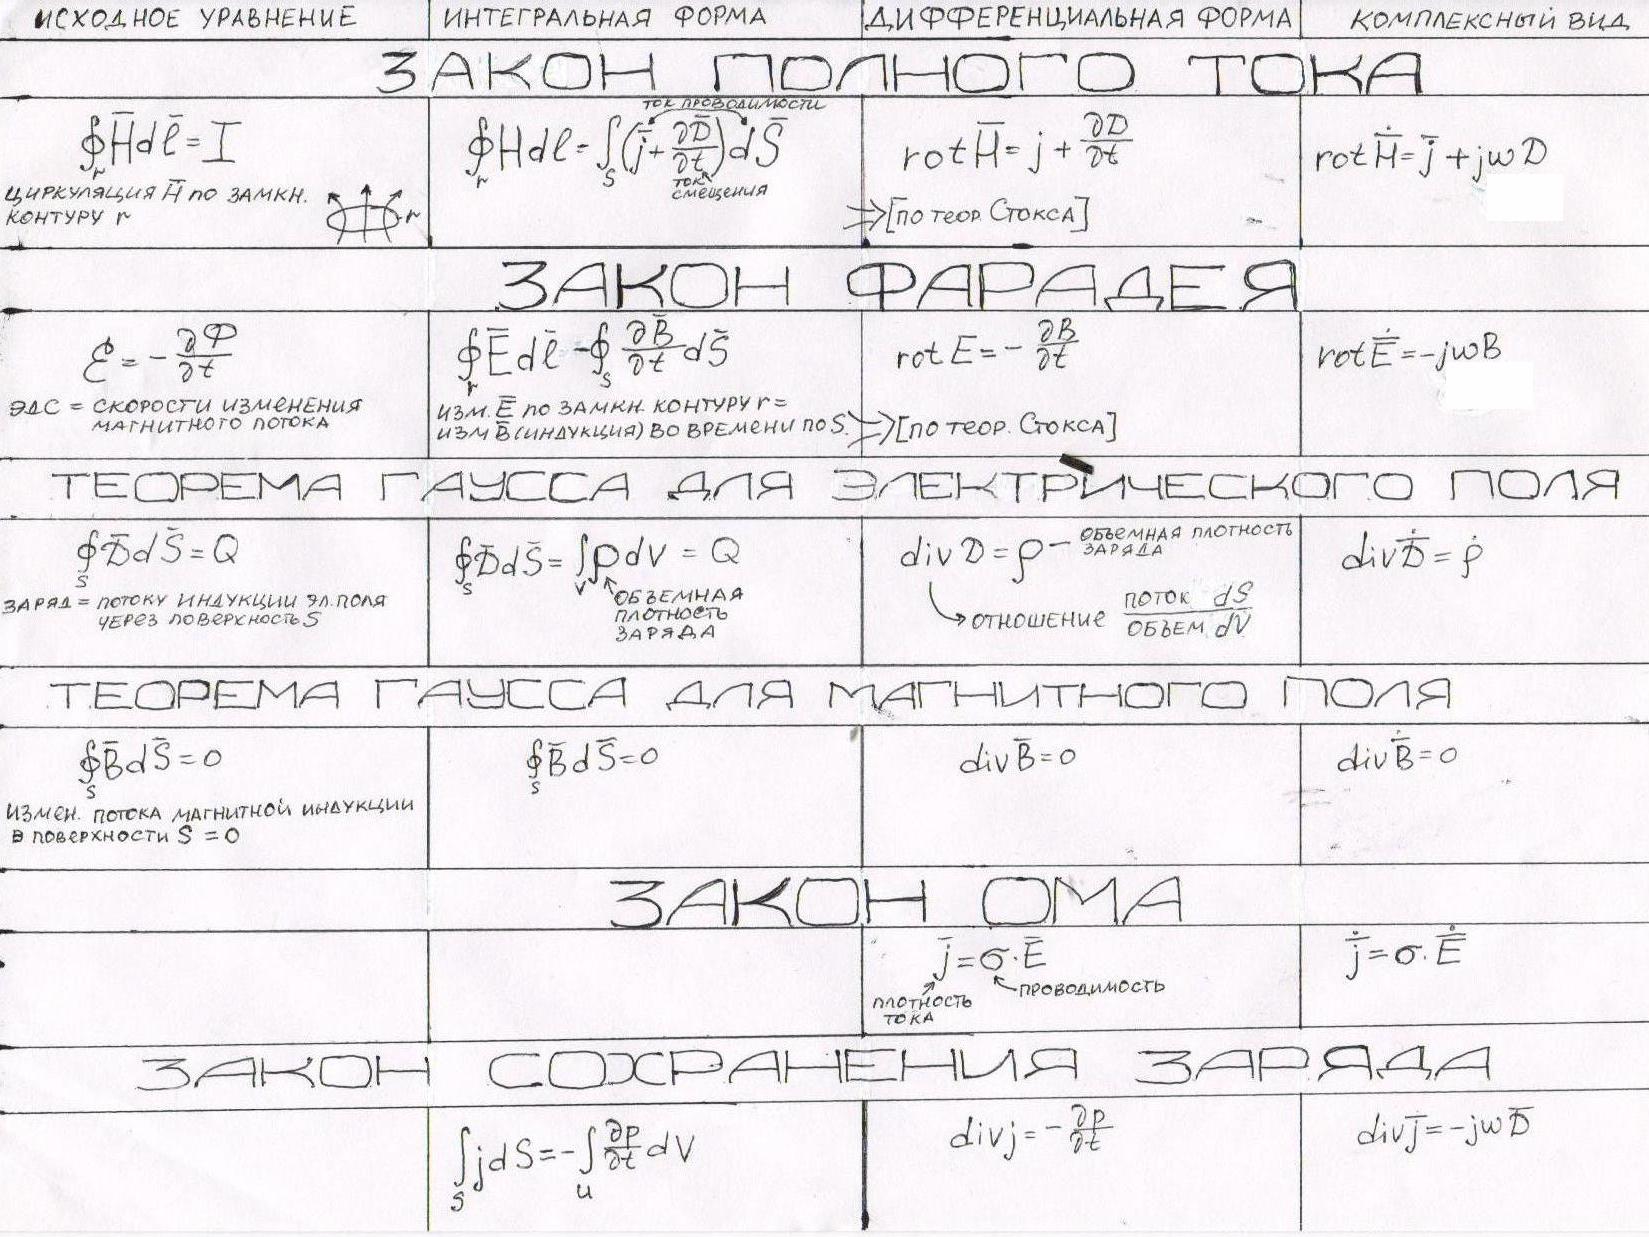 ИСХОДНОЕ УРАВНЕНИЕ ИНТЕГРАЛЬНАЯ ФОРМА ДИФФЕРЕНЦИАЛЬНАЯ ФОРМА КОМПЛЕКСНЫЙ ВИД
ЗАКОН ПОЛНОГО ТОКА
∮H̄dℓ̄=I
r
ЦИРКУЛЯЦИЯ H̄ ПО ЗАМКН.
КОНТУРУ r
r
ТОК ПРОВОДИМОСТИ
∮Hdl=∫(j̄+∂D̄/∂t)dS̄
r S
ТОК
СМЕЩЕНИЯ
rotH̄=j+∂D/∂t
⇒[ПО ТЕОР. СТОКСА]
rotH̄̇=j̄+jwD
ЗАКОН ФАРАДЕЯ
ℰ=-∂Ф/∂t
ЭДС = СКОРОСТИ ИЗМЕНЕНИЯ
МАГНИТНОГО ПОТОКА
∮Ēdℓ̄-∮∂B̄/∂t dS̄
r S
ИЗМ. Ē ПО ЗАМКН. КОНТУРУ r=
ИЗМ B̄(ИНДУКЦИЯ) ВО ВРЕМЕНИ ПО S.
rotE=-∂B/∂t
⇒[ПО ТЕОР. СТОКСА]
rotĒ̇=-jwB
ТЕОРЕМА ГАУССА ДЛЯ ЭЛЕКТРИЧЕСКОГО ПОЛЯ
∮D̄dS̄=Q
S
ЗАРЯД = ПОТОКУ ИНДУКЦИИ ЭЛ. ПОЛЯ
ЧЕРЕЗ ПОВЕРХНОСТЬ S
∮D̄dS̄=∫ρdV=Q
S V
ОБЪЕМНАЯ
ПЛОТНОСТЬ
ЗАРЯДА
divD=ρ – ОБЪЕМНАЯ ПЛОТНОСТЬ
ЗАРЯДА
ОТНОШЕНИЕ ПОТОК dS/ОБЪЕМ dV
divD̄̇=ρ̇
ТЕОРЕМА ГАУССА ДЛЯ МАГНИТНОГО ПОЛЯ
∮B̄dS̄=0
S
ИЗМЕН. ПОТОКА МАГНИТНОЙ ИНДУКЦИИ
В ПОВЕРХНОСТИ S=0
∮B̄dS̄=0
S
divB̄=0
divB̄̇=0
ЗАКОН ОМА
j̄=σ·Ē
ПРОВОДИМОСТЬ
ПЛОТНОСТЬ
ТОКА
j̄̇=σ·Ē̇
ЗАКОН СОХРАНЕНИЯ ЗАРЯДА
∫jdS=-∫∂p/∂t dV
S u
divj=-∂p/∂t
divj̄=-jwD̄